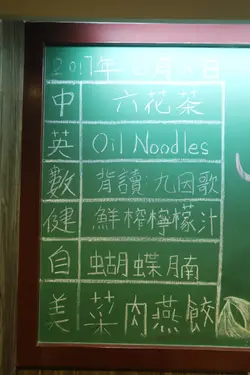 2017年 月 日
中 六花茶
英 Oil Noodles
數 背讀:九因歌
健 鮮榨檸檬汁
自 蝴蝶腩
美 菜肉燕餃